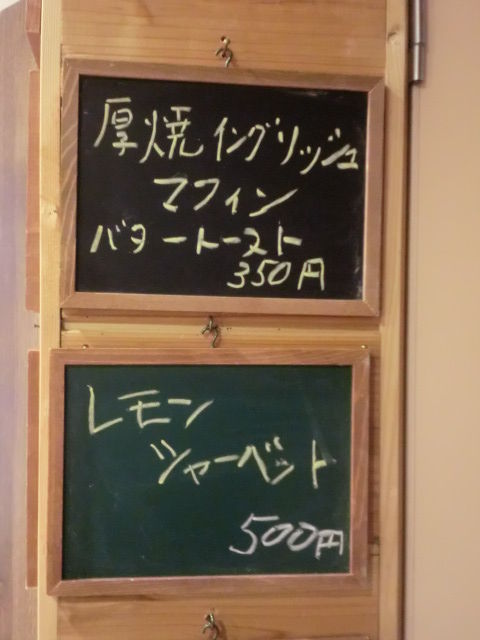 厚焼イングリッシュ
マフィン
バタートースト
350円
レモン
シャーベット
500円